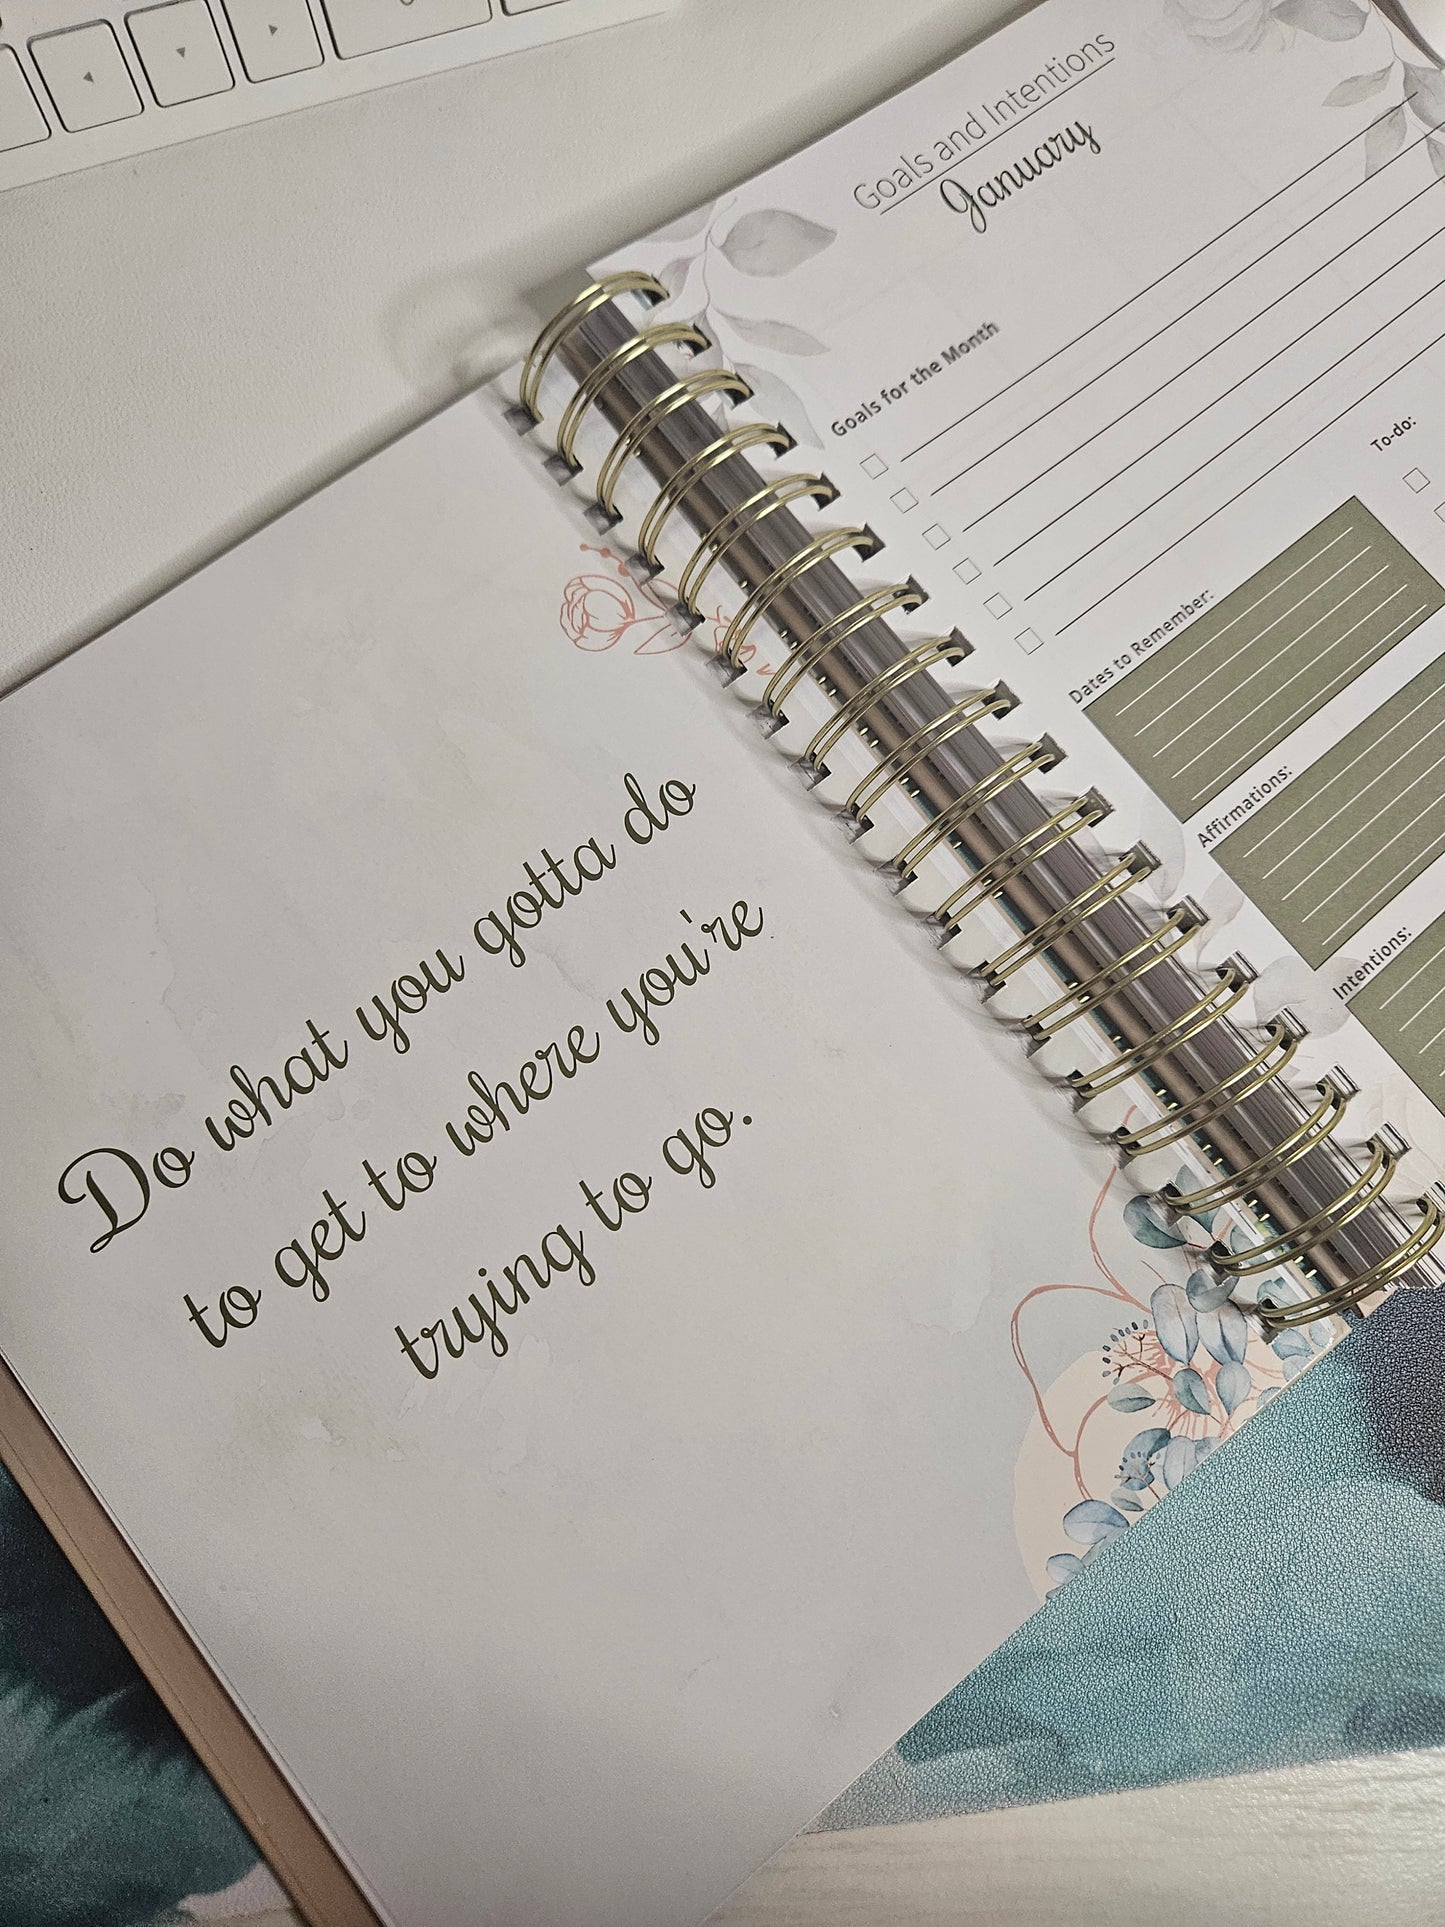 Do what you gotta do
to get to where you're
trying to go.
Goals and Intentions
January
Goals for the Month
To-do:
Dates to Remember:
Affirmations:
Intentions: